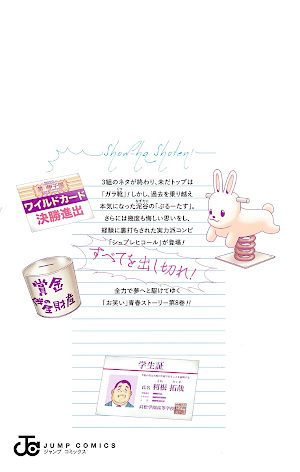 Show-ha Shoten!
3組のネタが終わり、未だトップは
「ガラ靴」! しかし、過去を乗り越え
本気になった泥谷の「ぶるーたす」。
さらには幾度も悔しい思いをし、
経験に裏打ちされた実力派コンビ
「シュプレヒコール」が登場!
ワイルドカード
決勝進出
すべてを出し切れ!
賞金
全財産
全力で夢へと駆けてゆく
「お笑い」青春ストーリー第8巻!!
学生証
氏名
拓哉
JUMP COMICS
ジャンプ コミックス